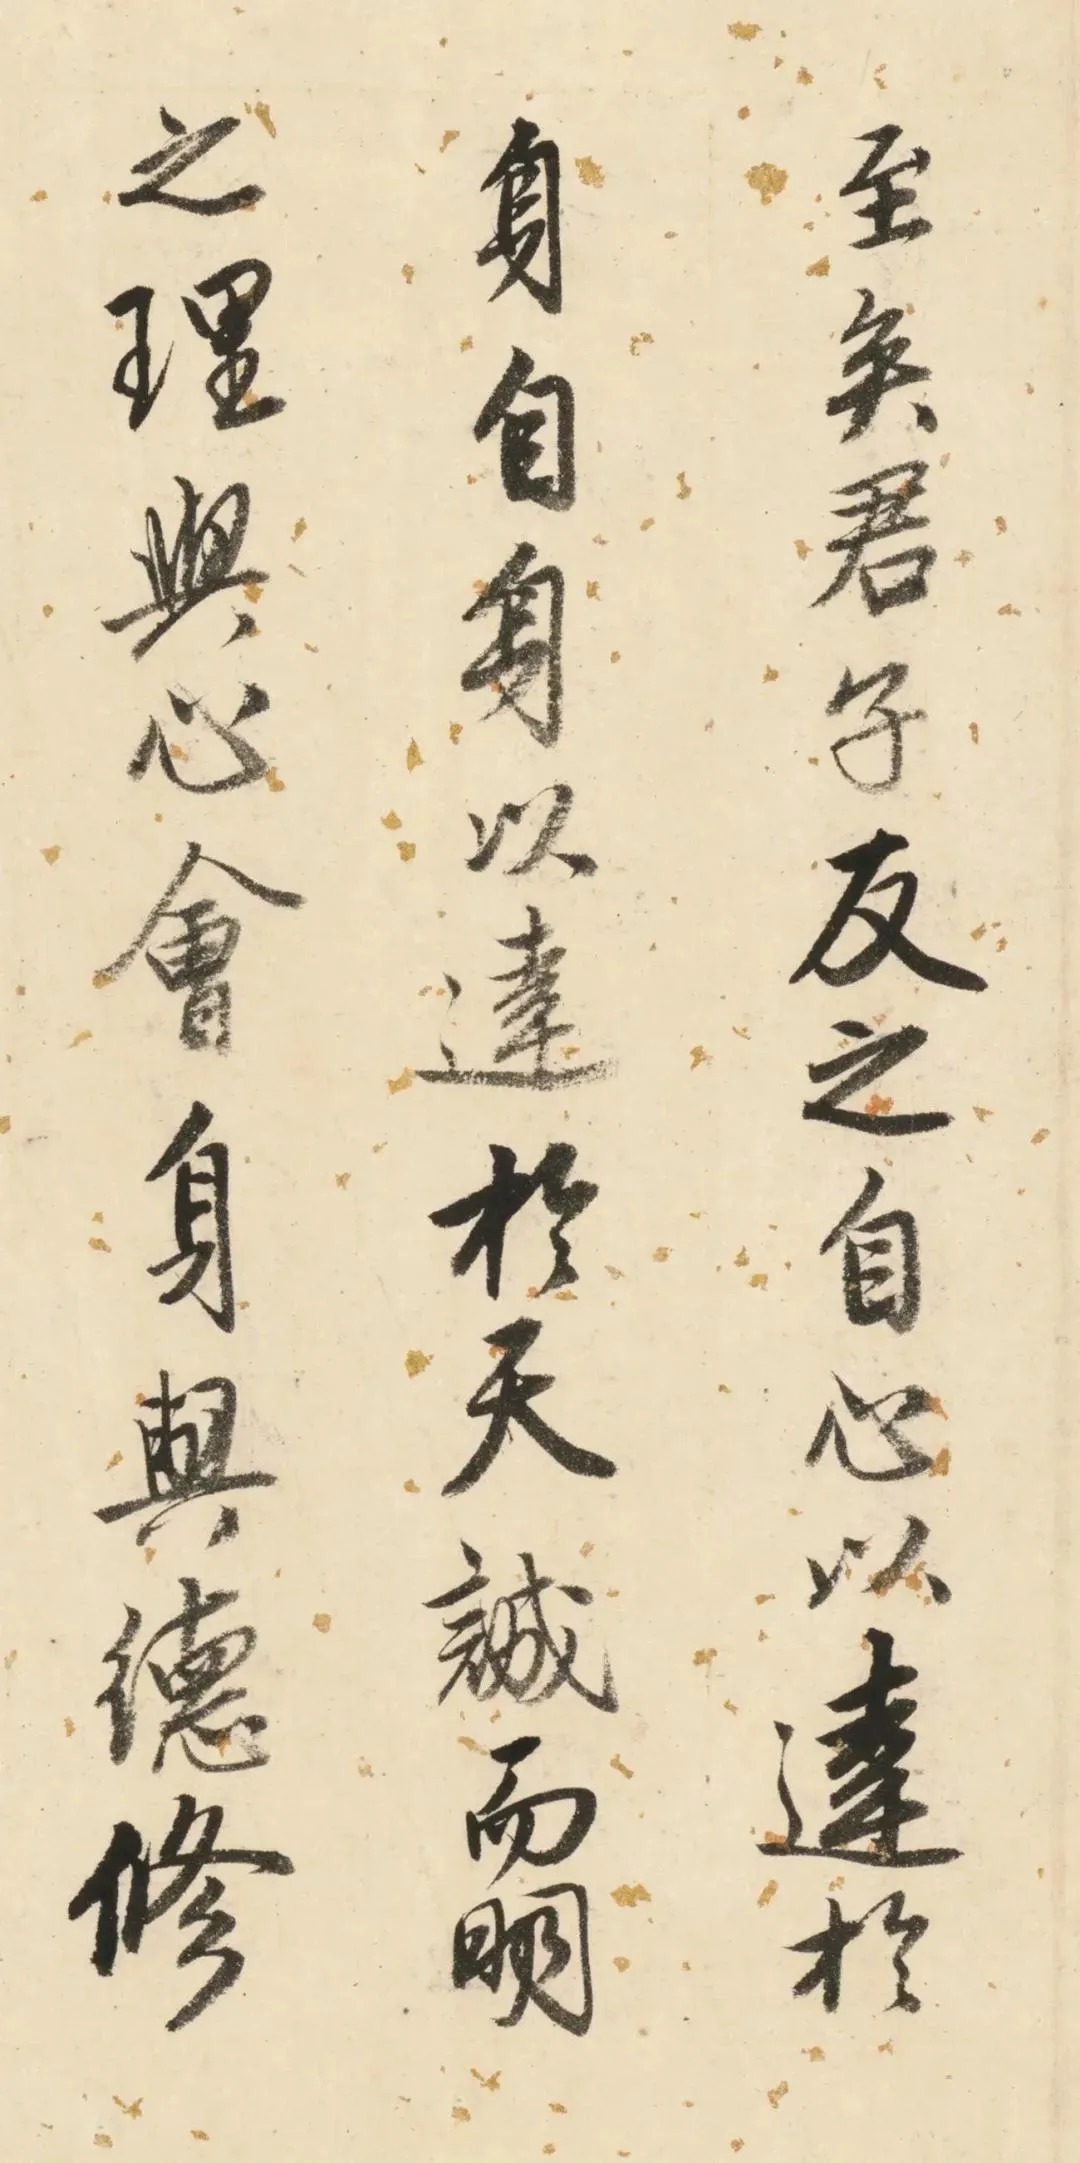 至矣君子反之自心以達於
身自身以達於天誠而明
之理與心會身與德修